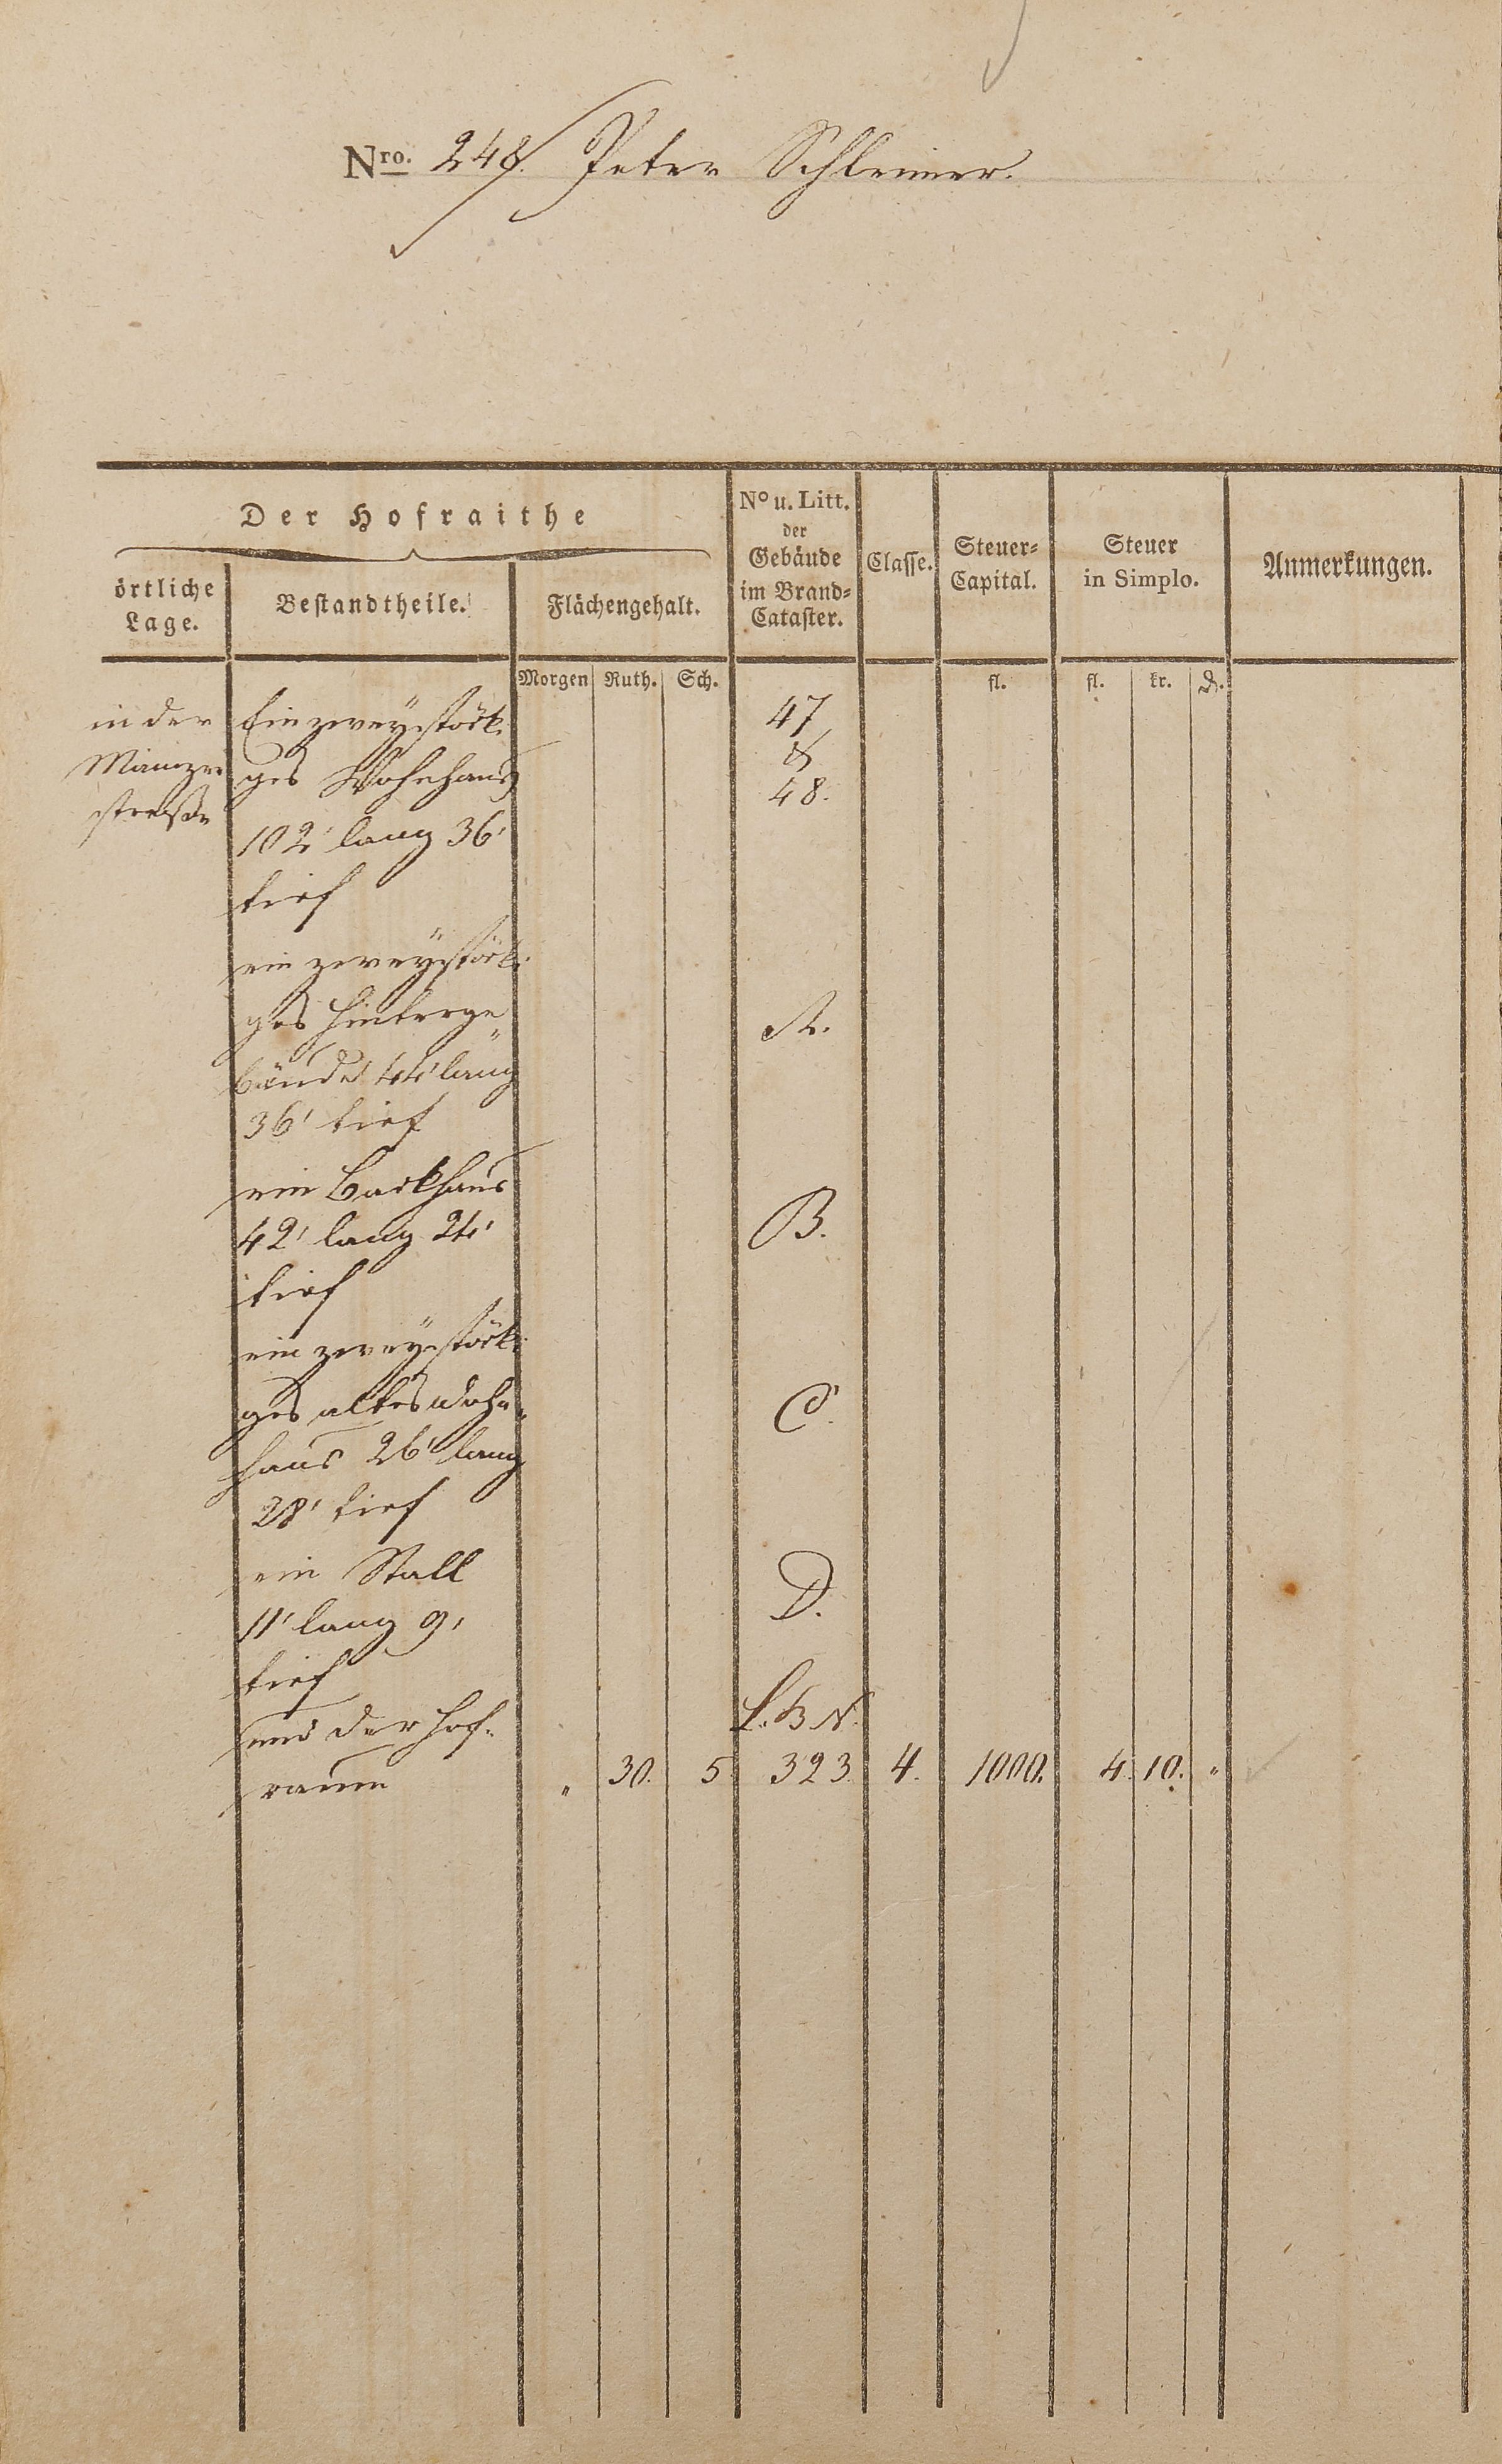 Nro. 248. Peter Schleimer.
Der Hofraithe
örtliche
Lage.
Bestandtheile.
Flächengehalt.
No u. Litt.
der
Gebäude
im Brand-
Cataster.
Classe.
Steuer-
Capital.
Steuer
in Simplo.
Anmerkungen.
Morgen Ruth. Sch. fl. fl. kr. d.
in der Ein zweystöck- 47
Mainzer ges Wohnhaus &
strasse 48.
102' lang 36'
tief
ein zweystöck-
ges Hinterge A.
bäude 44' lang
36' tief
ein Backhaus
42' lang 24' B.
tief
ein zweystöck-
ges altes Wohn- C.
haus 26' lang
28' tief
ein Stall D.
11' lang 9'
tief
und der Hof- L. B N.
raum " 30. 5 323 4. 1000. 4. 10. "